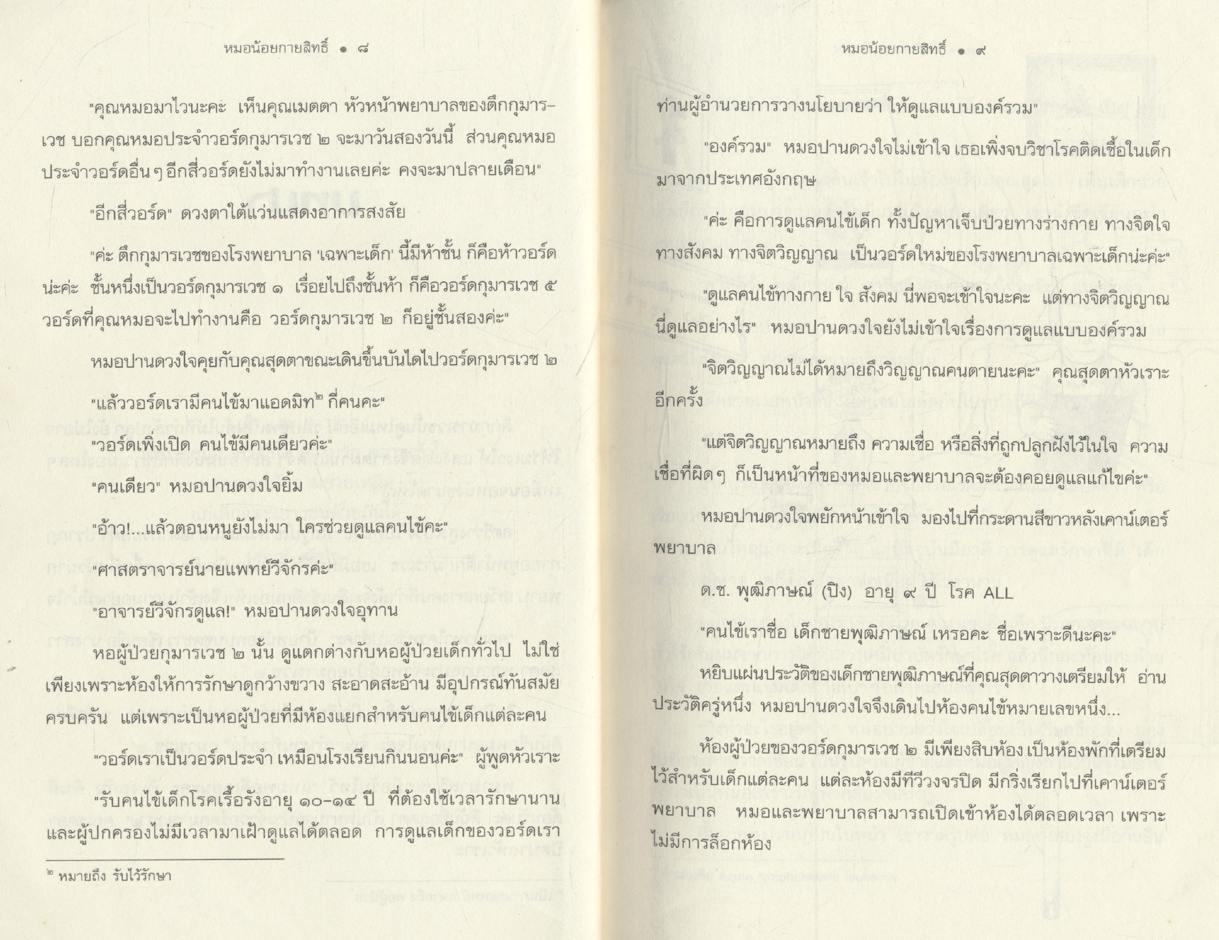 หมอน้อยกายสิทธิ์ ● ๘
"คุณหมอมาไวนะคะ เห็นคุณเมตตา หัวหน้าพยาบาลของตึกกุมาร-
เวช บอกคุณหมอประจำวอร์ดกุมารเวช ๒ จะมาวันสองวันนี้ ส่วนคุณหมอ
ประจำวอร์ดอื่นๆ อีกสี่วอร์ดยังไม่มาทำงานเลยค่ะ คงจะมาปลายเดือน"
"อีกสี่วอร์ด" ดวงตาใต้แว่นแสดงอาการสงสัย
"ค่ะ ตึกกุมารเวชของโรงพยาบาล 'เฉพาะเด็ก' นี้มีห้าชั้น ก็คือห้าวอร์ด
น่ะค่ะ ชั้นหนึ่งเป็นวอร์ดกุมารเวช ๑ เรื่อยไปถึงชั้นห้า ก็คือวอร์ดกุมารเวช ๕
วอร์ดที่คุณหมอจะไปทำงานคือ วอร์ดกุมารเวช ๒ ก็อยู่ชั้นสองค่ะ"
หมอปานดวงใจคุยกับคุณสุดตาขณะเดินขึ้นบันไดไปวอร์ดกุมารเวช ๒
"แล้ววอร์ดเรามีคนไข้มาแอดมิท๒ กี่คนคะ"
"วอร์ดเพิ่งเปิด คนไข้มีคนเดียวค่ะ"
"คนเดียว" หมอปานดวงใจยิ้ม
"อ้าว!...แล้วตอนหนูยังไม่มา ใครช่วยดูแลคนไข้คะ"
"ศาสตราจารย์นายแพทย์วีจักรค่ะ"
"อาจารย์วีจักรดูแล!" หมอปานดวงใจอุทาน
หอผู้ป่วยกุมารเวช ๒ นั้น ดูแตกต่างกับหอผู้ป่วยเด็กทั่วไป ไม่ใช่
เพียงเพราะห้องให้การรักษาดูกว้างขวาง สะอาดสะอ้าน มีอุปกรณ์ทันสมัย
ครบครัน แต่เพราะเป็นหอผู้ป่วยที่มีห้องแยกสำหรับคนไข้เด็กแต่ละคน
"วอร์ดเราเป็นวอร์ดประจำ เหมือนโรงเรียนกินนอนค่ะ" ผู้พูดหัวเราะ
"รับคนไข้เด็กโรคเรื้อรังอายุ ๑๐-๑๔ ปี ที่ต้องใช้เวลารักษานาน
และผู้ปกครองไม่มีเวลามาเฝ้าดูแลได้ตลอด การดูแลเด็กของวอร์ดเรา
๒ หมายถึง รับไว้รักษา
หมอน้อยกายสิทธิ์ ● ๙
ท่านผู้อำนวยการวางนโยบายว่า ให้ดูแลแบบองค์รวม"
"องค์รวม" หมอปานดวงใจไม่เข้าใจ เธอเพิ่งจบวิชาโรคติดเชื้อในเด็ก
มาจากประเทศอังกฤษ
"ค่ะ คือการดูแลคนไข้เด็ก ทั้งปัญหาเจ็บป่วยทางร่างกาย ทางจิตใจ
ทางสังคม ทางจิตวิญญาณ เป็นวอร์ดใหม่ของโรงพยาบาลเฉพาะเด็กน่ะค่ะ"
"ดูแลคนไข้ทางกาย ใจ สังคม นี่พอจะเข้าใจนะคะ แต่ทางจิตวิญญาณ
นี่ดูแลอย่างไร" หมอปานดวงใจยังไม่เข้าใจเรื่องการดูแลแบบองค์รวม
"จิตวิญญาณไม่ได้หมายถึงวิญญาณคนตายนะคะ" คุณสุดตาหัวเราะ
อีกครั้ง
"แต่จิตวิญญาณหมายถึง ความเชื่อ หรือสิ่งที่ถูกปลูกฝังไว้ในใจ ความ
เชื่อที่ผิดๆ ก็เป็นหน้าที่ของหมอและพยาบาลจะต้องคอยดูแลแก้ไขค่ะ"
หมอปานดวงใจพยักหน้าเข้าใจ มองไปที่กระดานสีขาวหลังเคาน์เตอร์
พยาบาล
ด.ช. พุฒิภาษณ์ (ปิง) อายุ ๙ ปี โรค ALL
"คนไข้เราชื่อ เด็กชายพุฒิภาษณ์ เหรอคะ ชื่อเพราะดีนะคะ"
หยิบแผ่นประวัติของเด็กชายพุฒิภาษณ์ที่คุณสุดตาวางเตรียมให้ อ่าน
ประวัติครู่หนึ่ง หมอปานดวงใจจึงเดินไปห้องคนไข้หมายเลขหนึ่ง...
ห้องผู้ป่วยของวอร์ดกุมารเวช ๒ มีเพียงสิบห้อง เป็นห้องพักที่เตรียม
ไว้สำหรับเด็กแต่ละคน แต่ละห้องมีทีวีวงจรปิด มีกริ่งเรียกไปที่เคาน์เตอร์
พยาบาล หมอและพยาบาลสามารถเปิดเข้าห้องได้ตลอดเวลา เพราะ
ไม่มีการล็อกห้อง